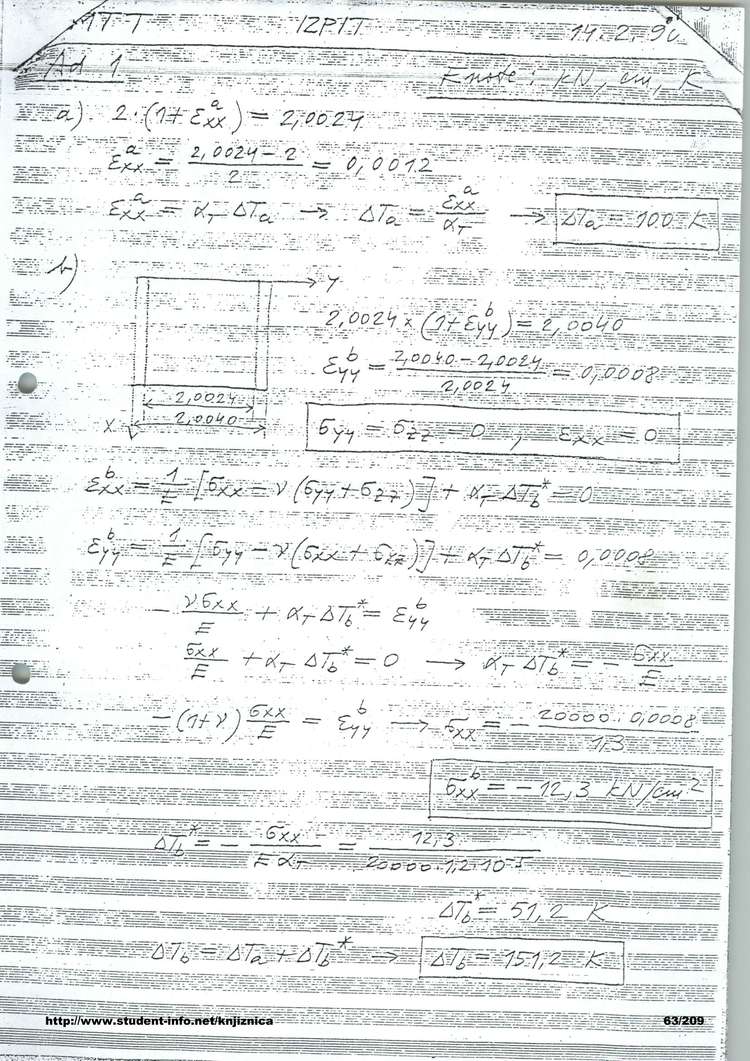 MTT IZPIT 14.2.90
Ad 1 Enote: kN, cm, K
a) 2·(1+εxx^a) = 2,0024
εxx^a = (2,0024-2)/2 = 0,0012
εxx^a = αT ΔTa → ΔTa = εxx^a/αT → ΔTa = 100 K
b)
Y
2,0024 × (1+εyy^b) = 2,0040
εyy^b = (2,0040-2,0024)/2,0024 = 0,0008
2,0024
X 2,0040
σyy = σzz = 0 , εxx = 0
εxx^b = 1/E [σxx - ν(σyy+σzz)] + αT ΔTb* = 0
εyy^b = 1/E [σyy - ν(σxx+σzz)] + αT ΔTb* = 0,0008
- νσxx/E + αT ΔTb* = εyy^b
σxx/E + αT ΔTb* = 0 → αT ΔTb* = - σxx/E
-(1+ν) σxx/E = εyy^b → σxx = - 20000·0,0008/1,3
σxx^b = -12,3 kN/cm²
ΔTb* = - σxx/(E αT) = 12,3/(20000·1,2·10^-5)
ΔTb* = 51,2 K
ΔTb = ΔTa + ΔTb* → ΔTb = 151,2 K
http://www.student-info.net/knjiznica 63/209